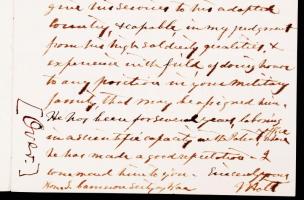 give his services to his adopted
country, & capable in my judgment
from his high soldierly qualities, &
experience in the field of doing honor
to any position in your military
family that may be assigned him.
He has been for several years laboring
in a scientific capacity in the Patent Office where
he has made a good reputation. I
commend him to you. Sincerely yours
Hon. S. Cameron Secty of War J. Holt
[Over.]